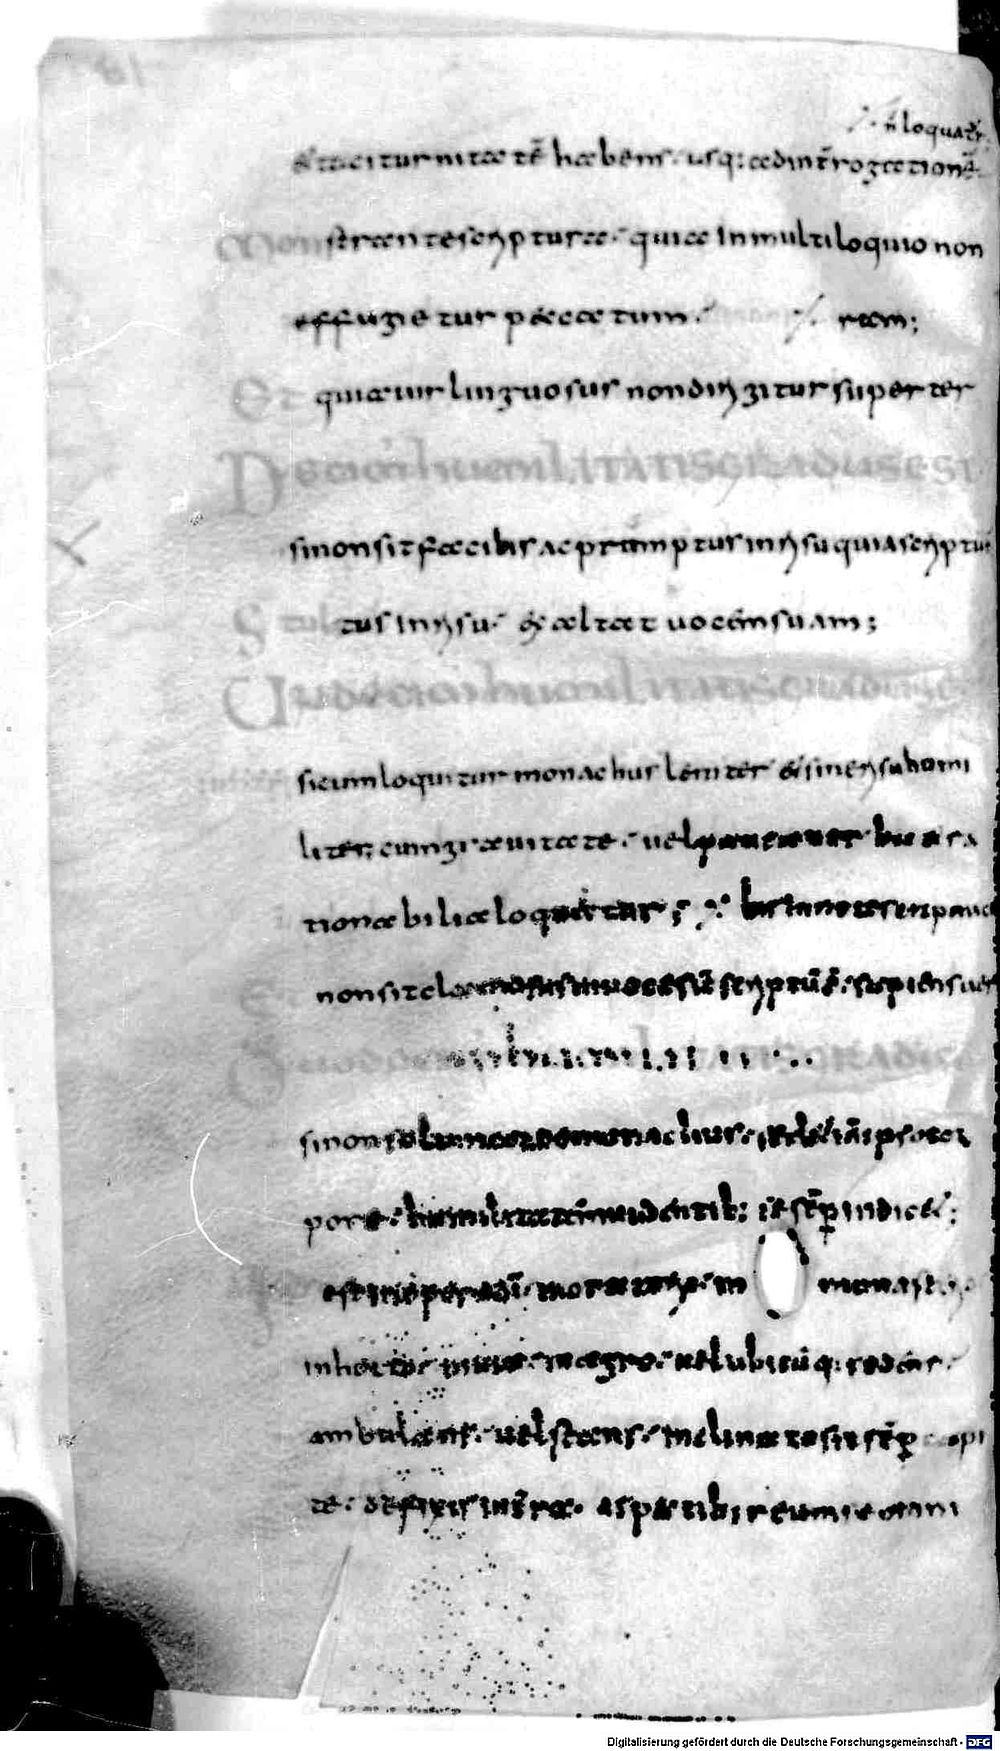 n̄ loquat̄r
& taciturnitatē habens. usq; ad intērrogationē
Monstrante scriptura. quia in multiloquio non
effugietur peccatum. ram;
Et quia uir linguosus non dirigitur super ter
Decim humilitatis gradus est
si non sit facilis ac promptus in risu quia scriptū
Stultus in risu. exaltat uocem suam;
Undecim humilitatis gradus
si cum loquitur monachus leniter & sine risu homi
liter; cum grauitate. uel pauca uerba & ra
tionabilia loquatur;
non sit clamosus in uoce sic̄ scriptū ē. sapiens uer
humilitatis gradus
si non solum corde monachus. ipso cor
pore. humilitatem uidentib; sē sēp indicet;
est in opere dī. in oratorio. in monasterio
in horto. in uia. in agro. uel ubicūq; sedens.
ambulans. uel stans. inclinato sit sēp capi
te. defixis in terra. aspectib;
Digitalisierung gefördert durch die Deutsche Forschungsgemeinschaft - DFG